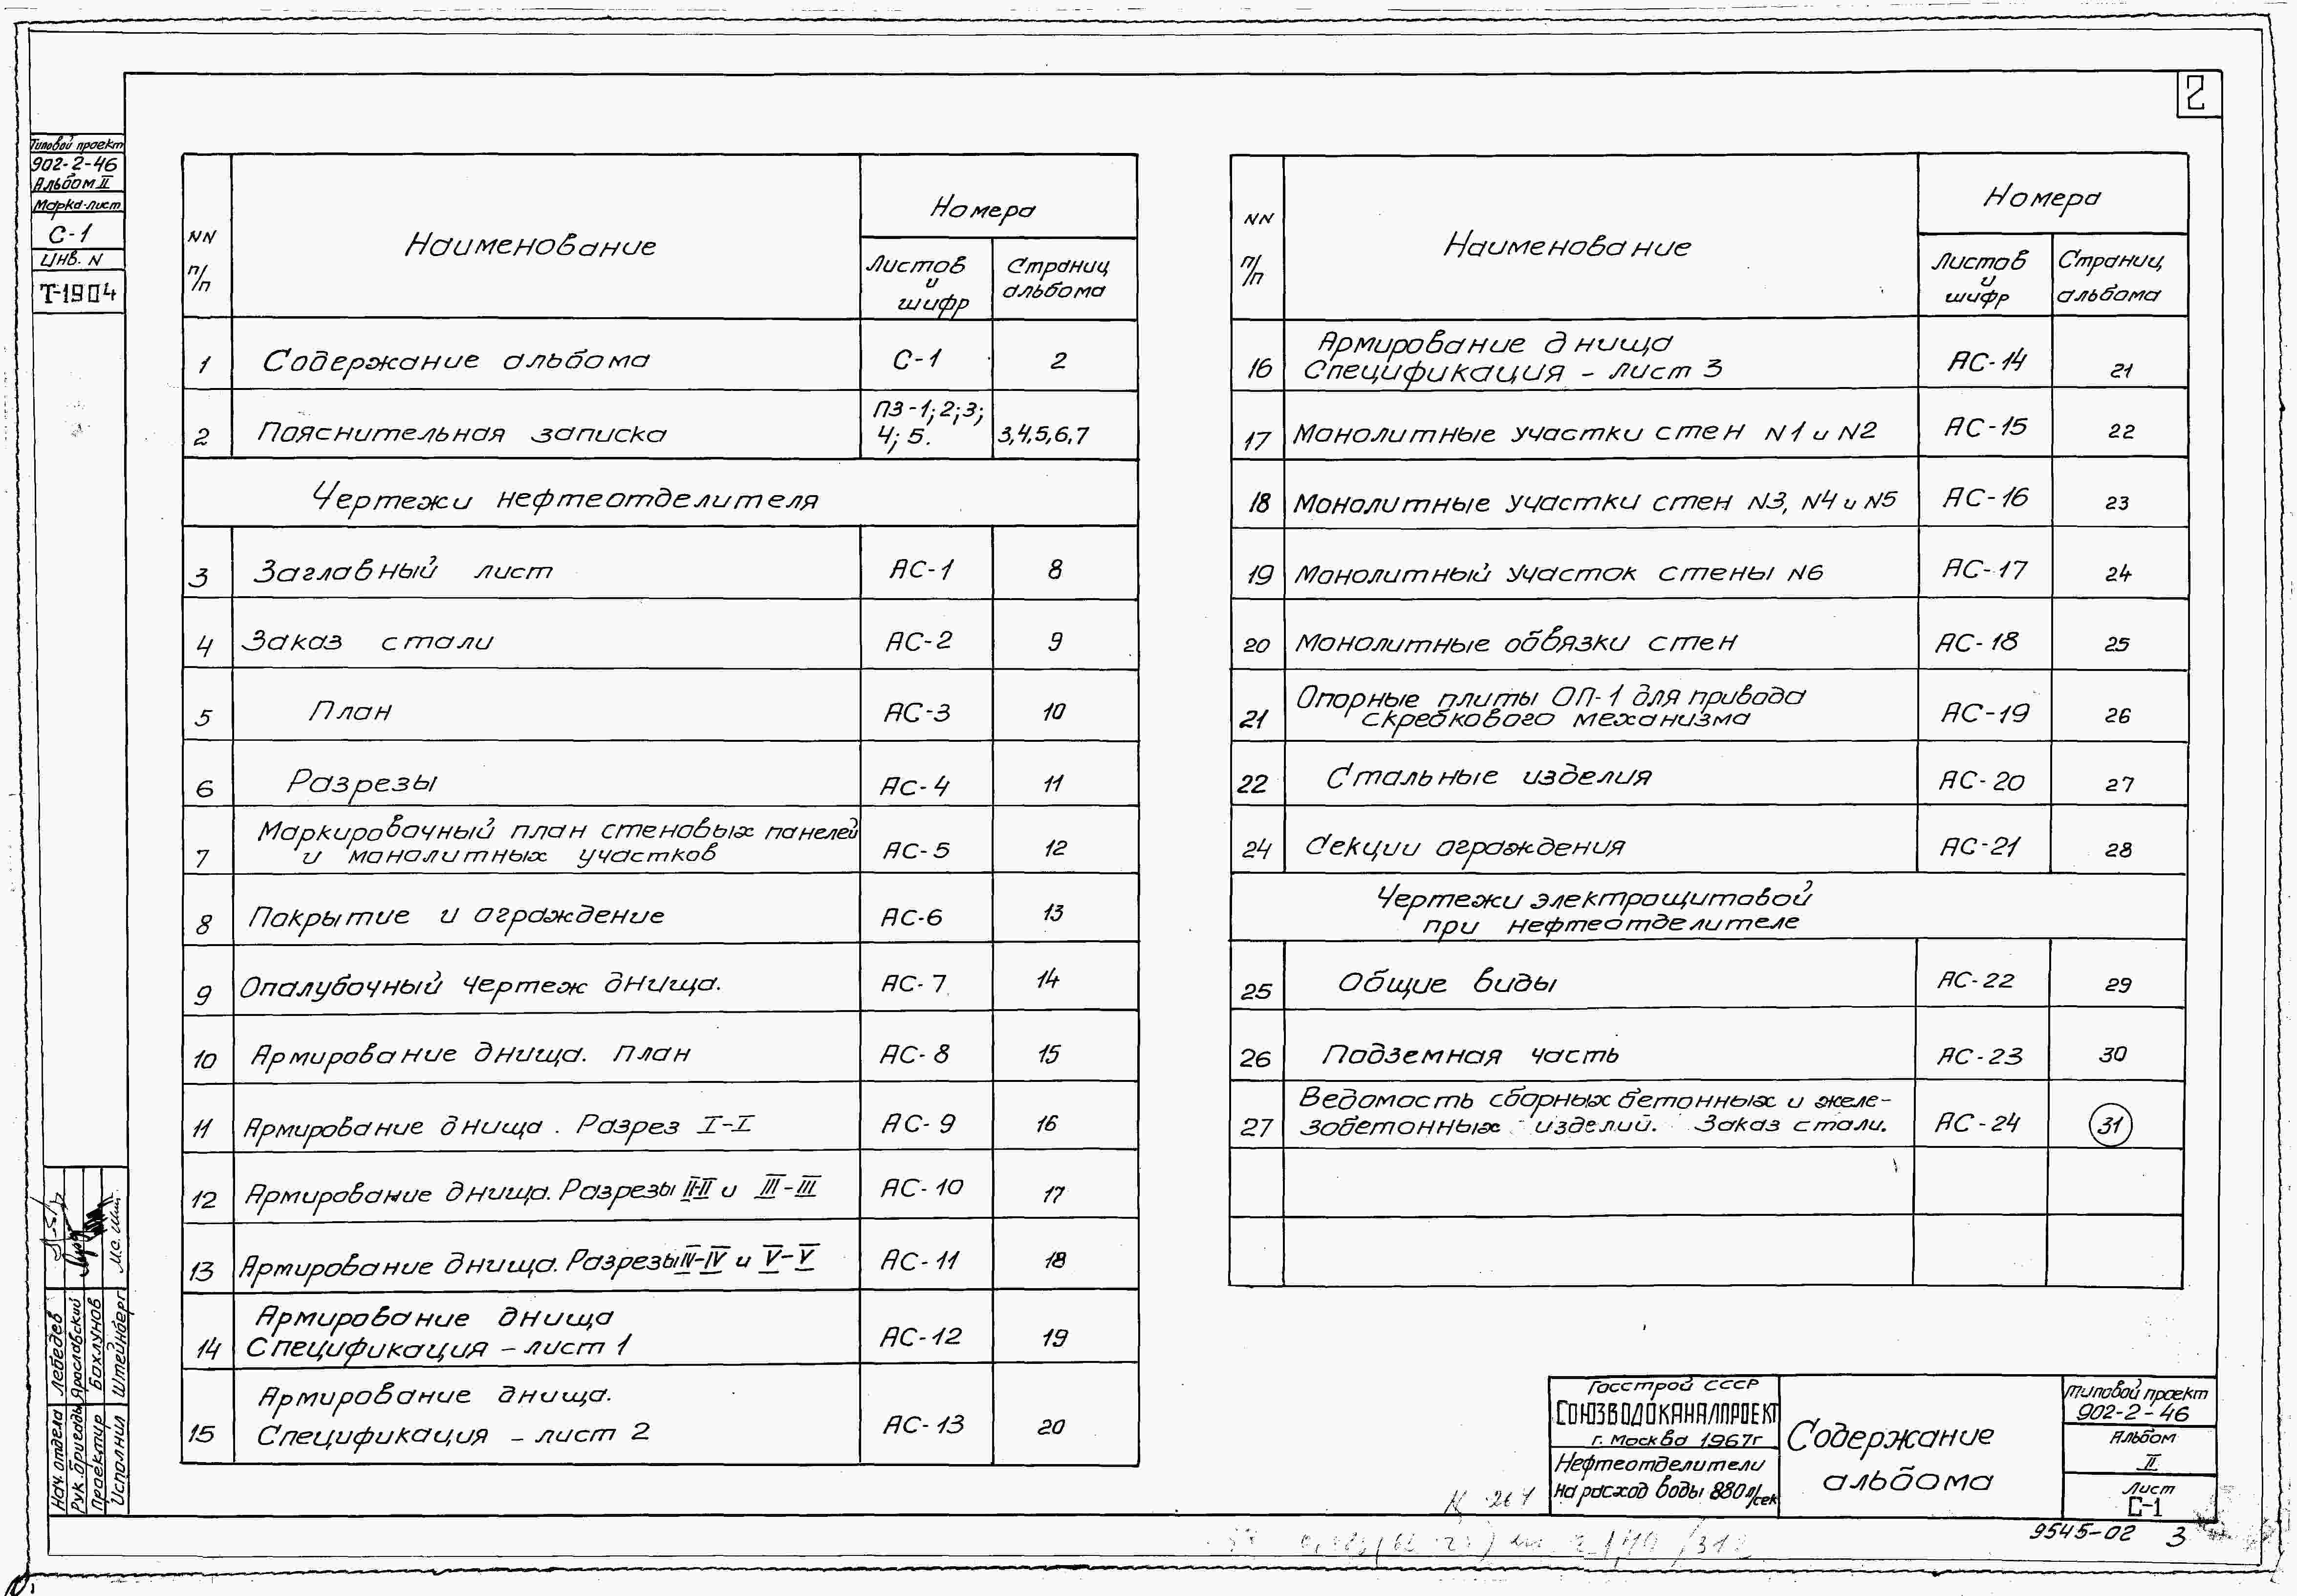 2
Типовой проект
902-2-46
Альбом II
Марка-лист
С-1
Инв. N
Т-1904
NN п/п
Наименование
Номера
Листов и шифр
Страниц альбома
1 Содержание альбома С-1 2
2 Пояснительная записка ПЗ-1; 2; 3; 4; 5. 3,4,5,6,7
Чертежи нефтеотделителя
3 Заглавный лист АС-1 8
4 Заказ стали АС-2 9
5 План АС-3 10
6 Разрезы АС-4 11
7 Маркировочный план стеновых панелей
и монолитных участков АС-5 12
8 Покрытие и ограждение АС-6 13
9 Опалубочный чертеж днища. АС-7 14
10 Армирование днища. План АС-8 15
11 Армирование днища. Разрез I-I АС-9 16
12 Армирование днища. Разрезы II-II и III-III АС-10 17
13 Армирование днища. Разрезы IV-IV и V-V АС-11 18
14 Армирование днища
Спецификация - лист 1 АС-12 19
15 Армирование днища.
Спецификация - лист 2 АС-13 20
NN п/п
Наименование
Номера
Листов и шифр
Страниц альбома
16 Армирование днища
Спецификация - лист 3 АС-14 21
17 Монолитные участки стен N1 и N2 АС-15 22
18 Монолитные участки стен N3, N4 и N5 АС-16 23
19 Монолитный участок стены N6 АС-17 24
20 Монолитные обвязки стен АС-18 25
21 Опорные плиты ОП-1 для привода
скребкового механизма АС-19 26
22 Стальные изделия АС-20 27
24 Секции ограждения АС-21 28
Чертежи электрощитовой
при нефтеотделителе
25 Общие виды АС-22 29
26 Подземная часть АС-23 30
27 Ведомость сборных бетонных и желе-
зобетонных изделий. Заказ стали. АС-24 31
Нач. отдела Лебедев
Рук. бригады Ярославский
Проектир Бахлунов
Исполнил Штейнберг
Госстрой СССР
Союзводоканалпроект
г. Москва 1967г
Нефтеотделители
на расход воды 880л/сек
Содержание
альбома
типовой проект
902-2-46
Альбом
II
Лист
С-1
9545-02 3